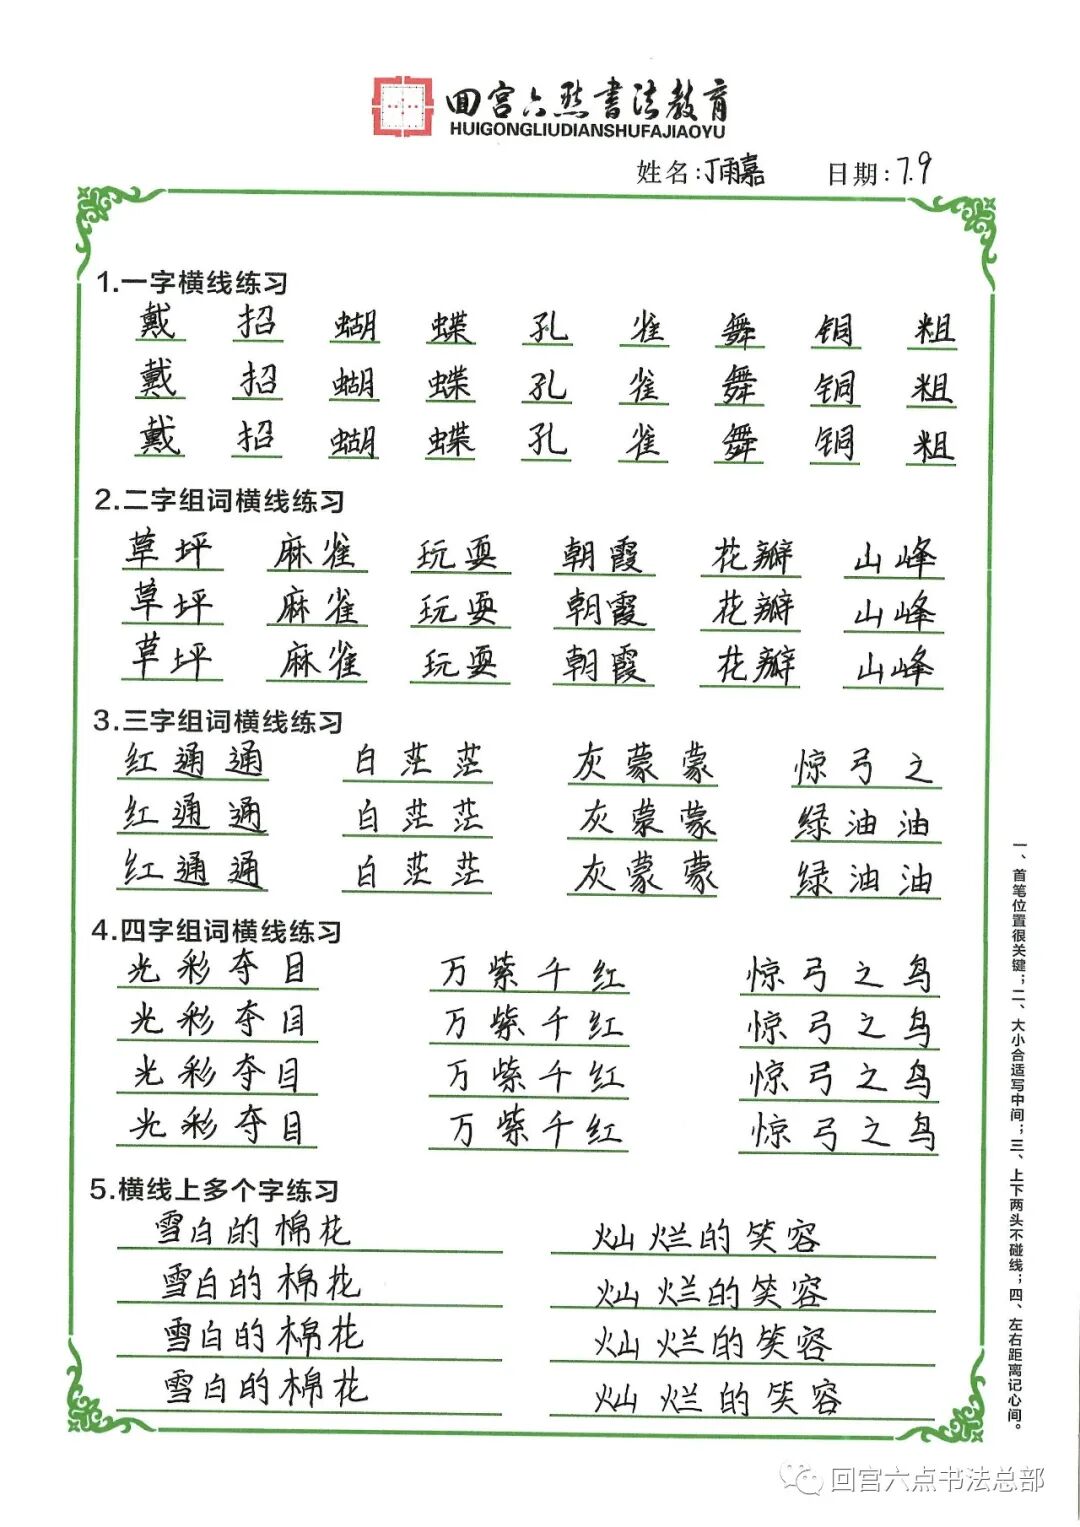 回宫六点书法教育
HUIGONGLIUDIANSHUFAJIAOYU
姓名:丁雨嘉 日期:7.9
1.一字横线练习
戴 招 蝴 蝶 孔 雀 舞 铜 粗
戴 招 蝴 蝶 孔 雀 舞 铜 粗
戴 招 蝴 蝶 孔 雀 舞 铜 粗
2.二字组词横线练习
草坪 麻雀 玩耍 朝霞 花瓣 山峰
草坪 麻雀 玩耍 朝霞 花瓣 山峰
草坪 麻雀 玩耍 朝霞 花瓣 山峰
3.三字组词横线练习
红通通 白茫茫 灰蒙蒙 惊弓之
红通通 白茫茫 灰蒙蒙 绿油油
红通通 白茫茫 灰蒙蒙 绿油油
4.四字组词横线练习
光彩夺目 万紫千红 惊弓之鸟
光彩夺目 万紫千红 惊弓之鸟
光彩夺目 万紫千红 惊弓之鸟
光彩夺目 万紫千红 惊弓之鸟
5.横线上多个字练习
雪白的棉花 灿烂的笑容
雪白的棉花 灿烂的笑容
雪白的棉花 灿烂的笑容
雪白的棉花 灿烂的笑容
一、首笔位置很关键;二、大小合适写中间;三、上下两头不碰线;四、左右距离记心间。
回宫六点书法总部